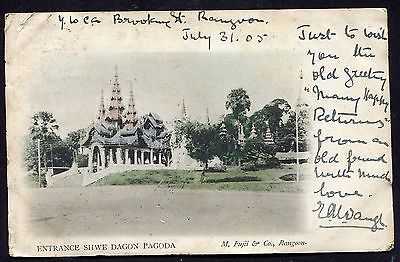 Y.W.C.A Brooking St. Rangoon.
July 31. 05
Just to wish
you the
old greeting
"Many Happy
Returns"
from an
old friend
With much
love.
ENTRANCE SHWE DAGON PAGODA
M. Fujii & Co., Rangoon.